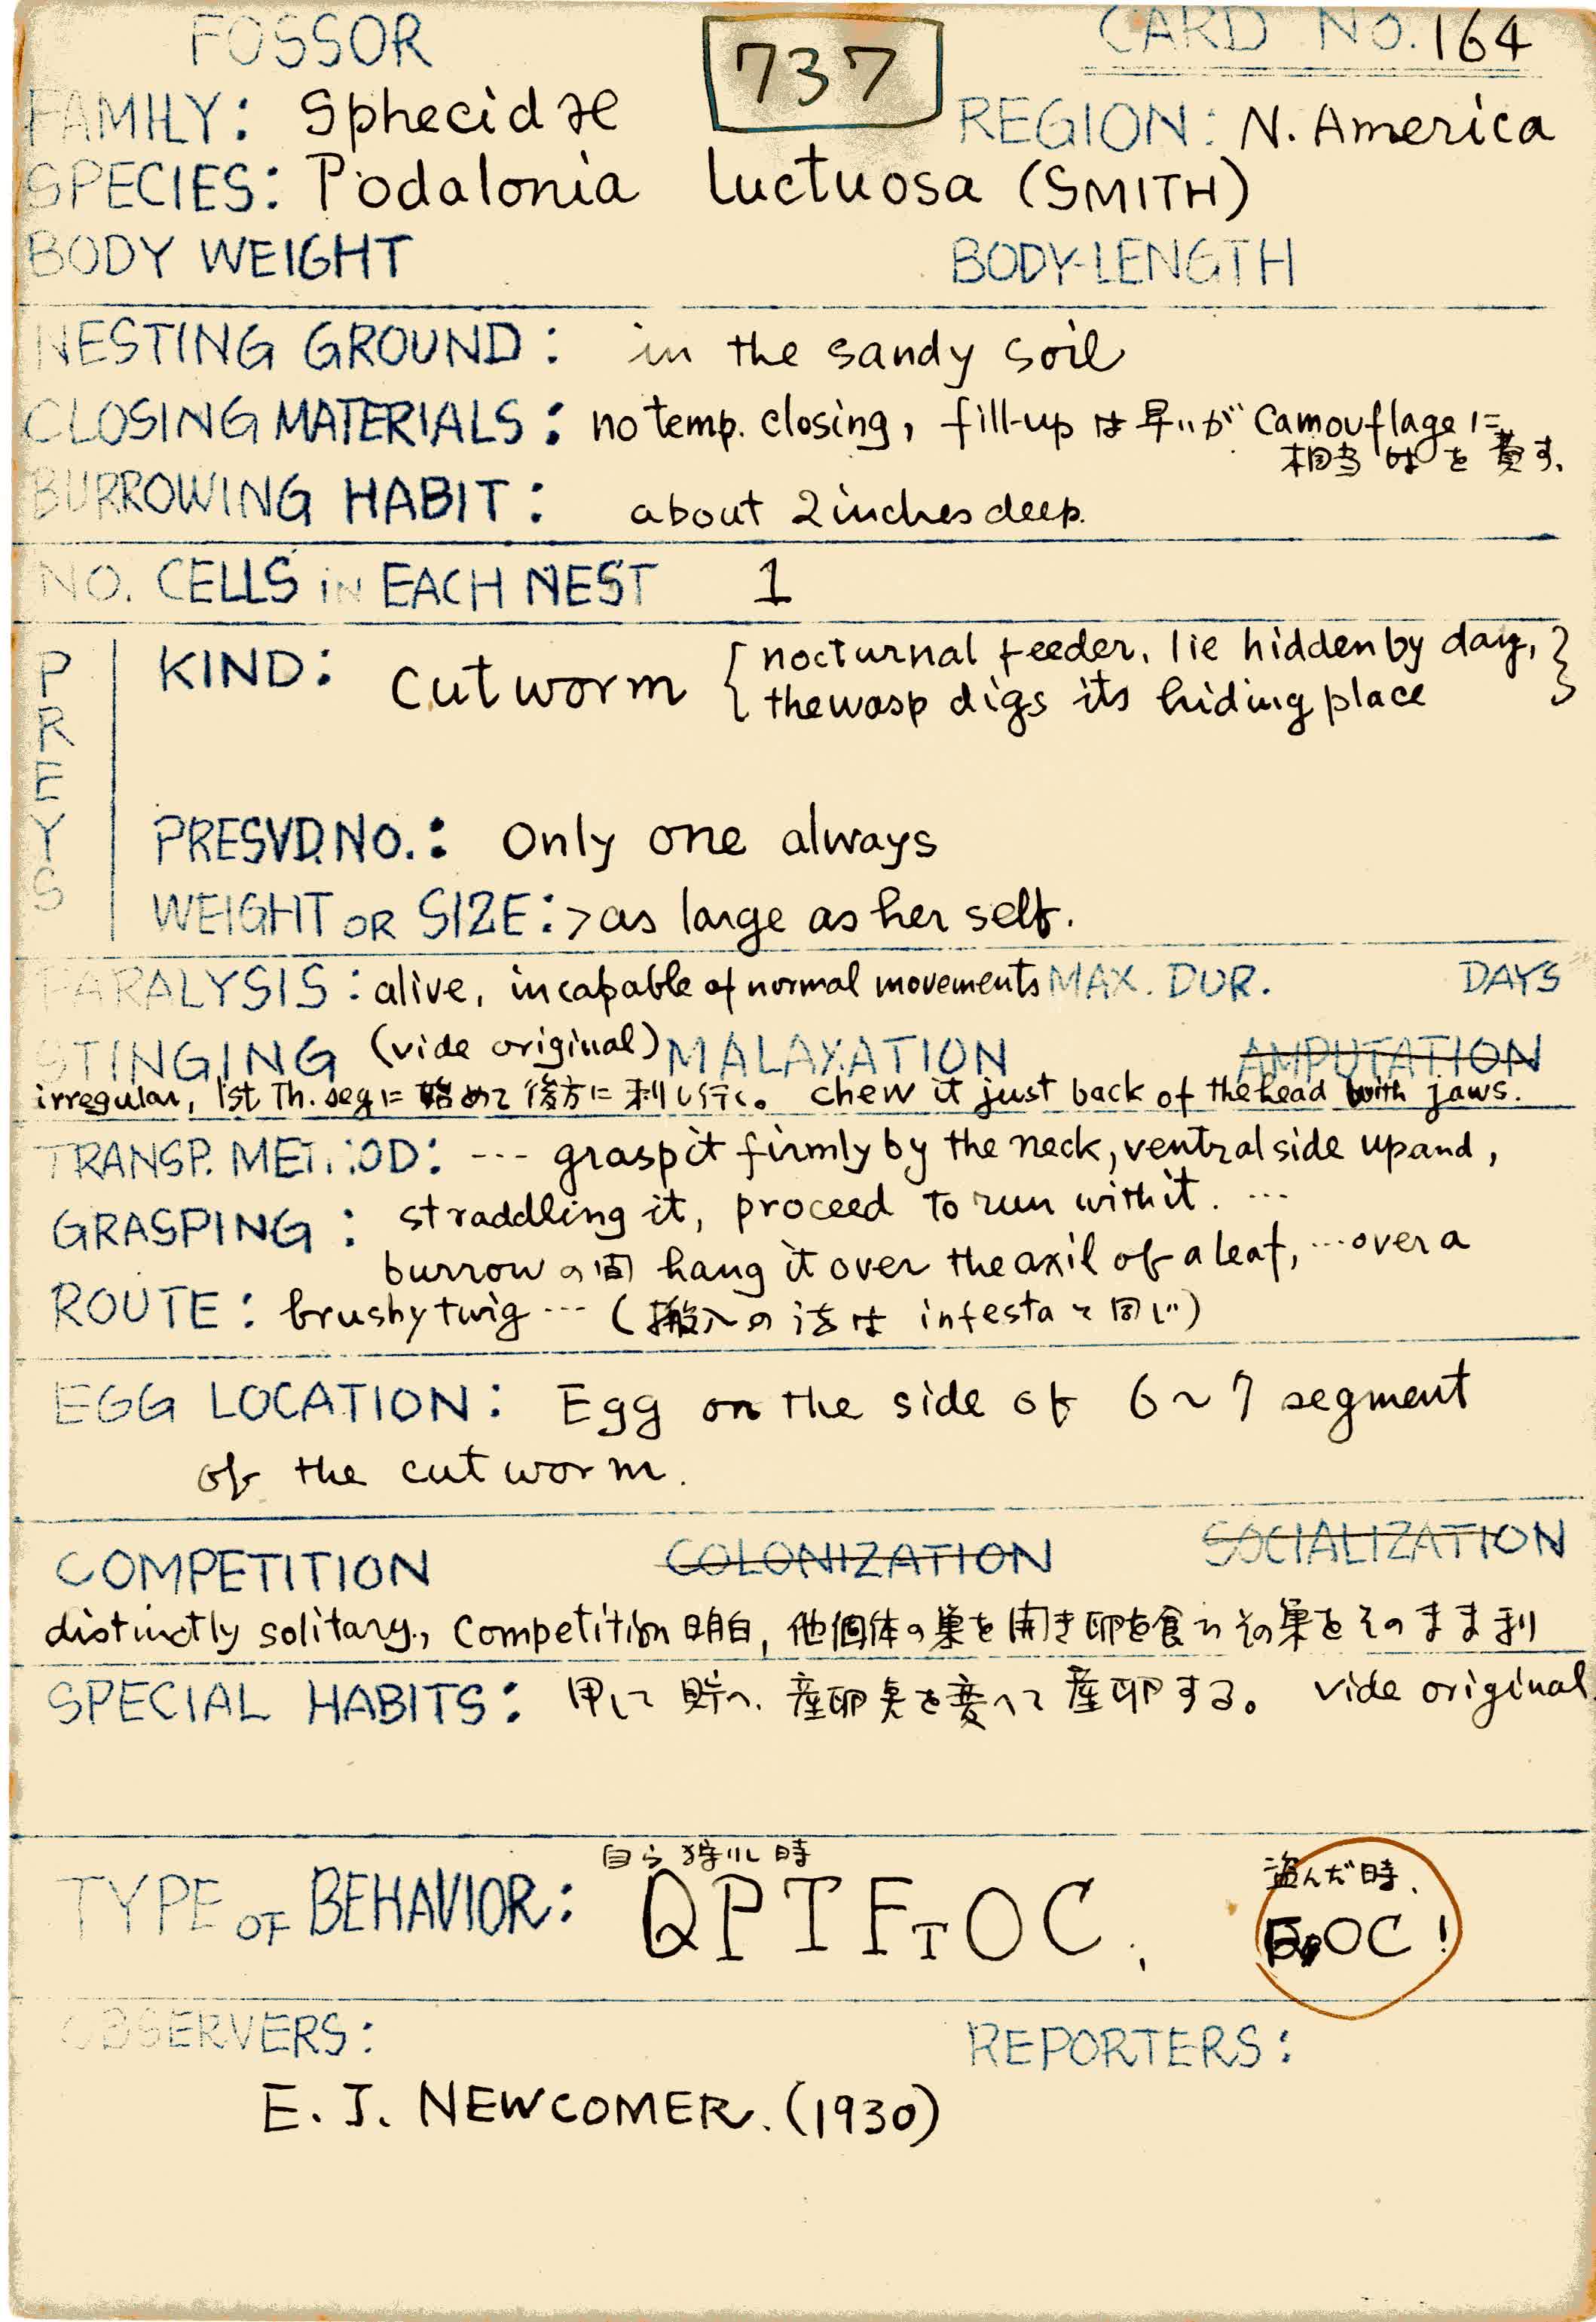 FOSSOR 737 CARD NO. 164
FAMILY: Sphecidæ REGION: N. America
SPECIES: Podalonia luctuosa (SMITH)
BODY WEIGHT BODY-LENGTH
NESTING GROUND: in the sandy soil
CLOSING MATERIALS: no temp. closing, fill-up は早いが Camouflage に
相当 時を費す.
BURROWING HABIT: about 2 inches deep.
NO. CELLS iN EACH NEST 1
PREYS
KIND: Cutworm { nocturnal feeder, lie hidden by day,
the wasp digs its hiding place }
PRESVD.NO.: Only one always
WEIGHT OR SIZE: > as large as her self.
PARALYSIS: alive, incapable of normal movements MAX. DUR. DAYS
STINGING (vide original) MALAXATION AMPUTATION
irregular, 1st Th. seg に始めて後方に刺し行く。 chew it just back of the head with jaws.
TRANSP. METHOD: --- grasp it firmly by the neck, ventral side up and,
GRASPING: straddling it, proceed to run with it. ...
burrow の間 hang it over the axil of a leaf, ... over a
ROUTE: brushy twig ... (搬入の法は infesta と同じ)
EGG LOCATION: Egg on the side of 6~7 segment
of the cutworm.
COMPETITION COLONIZATION SOCIALIZATION
distinctly solitary., Competition 明白, 他個体の巣を開き卵を食ひその巣をそのまま利
SPECIAL HABITS: 用して貯へ、産卵臭を変へて産卵する。 vide original
自ら狩りし時 盗んだ時、
TYPE OF BEHAVIOR: QPTFTOC, OC!
OBSERVERS: REPORTERS:
E. J. NEWCOMER. (1930)